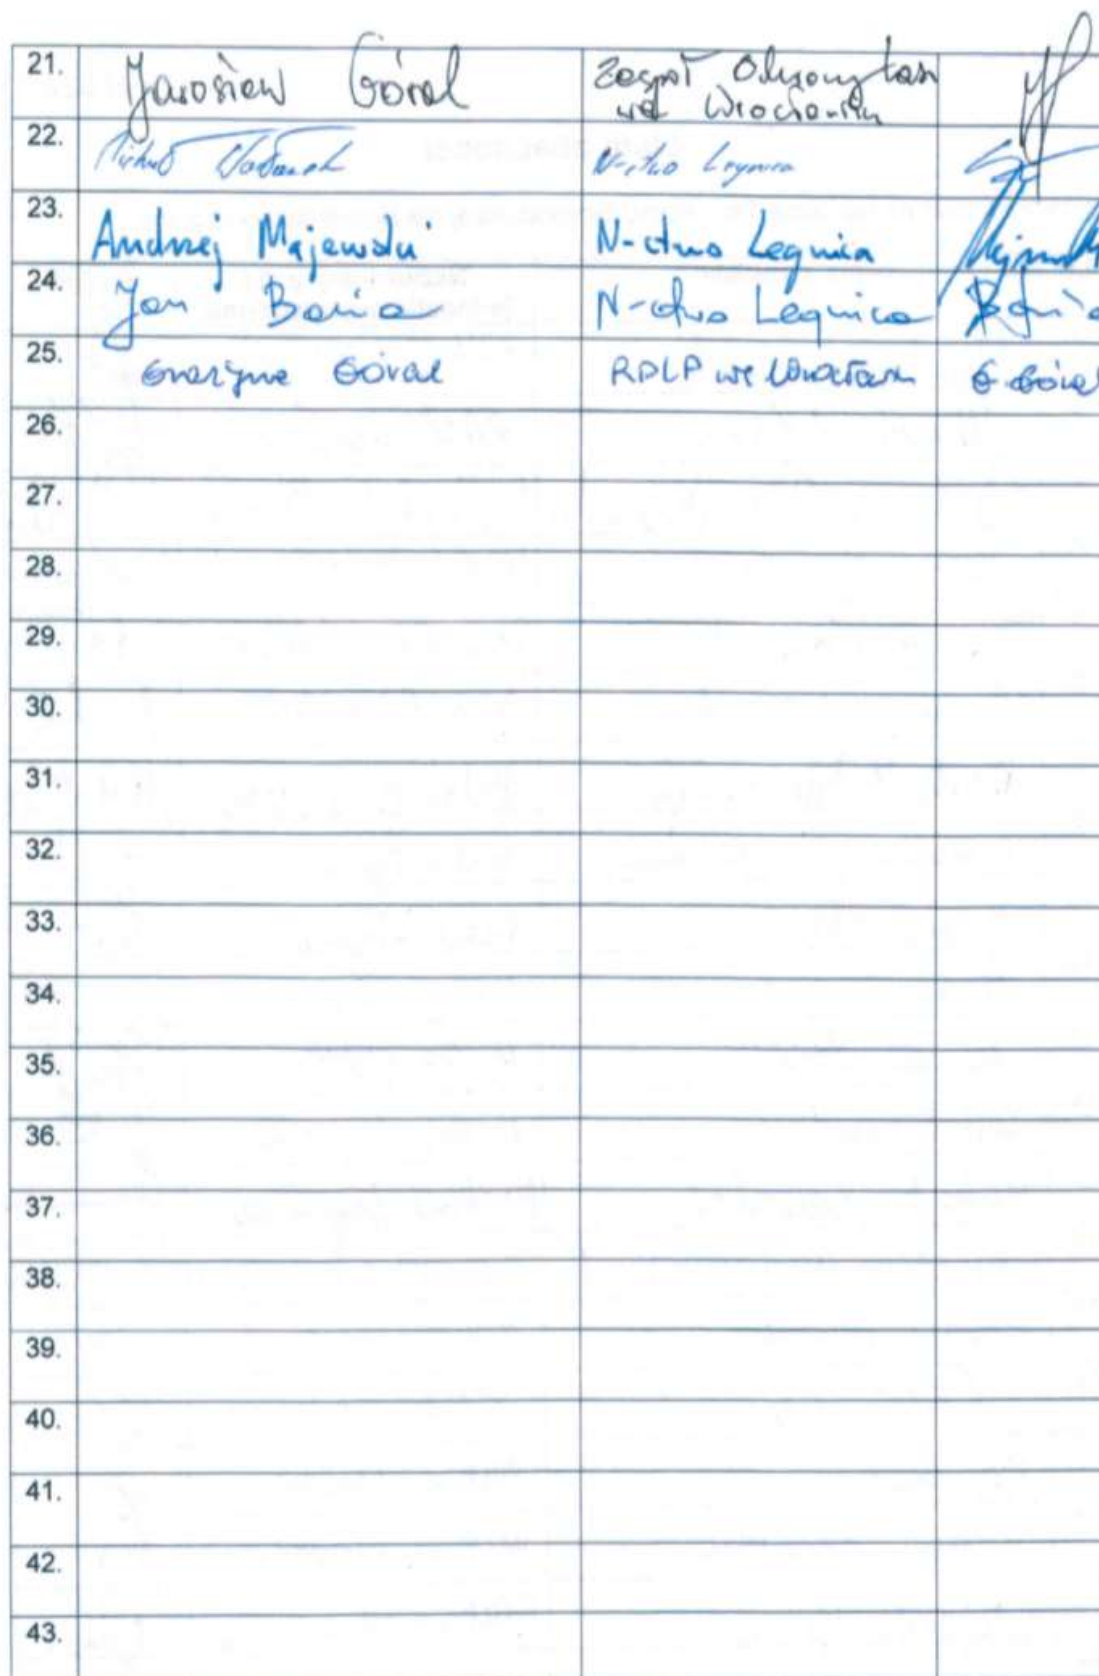 21. Jarosław Góral Zespół Ochrony Lasu
we Wrocławiu
22. Michał N-ctwo Legnica
23. Andrzej Majewski N-ctwo Legnica
24. Jan Bania N-ctwo Legnica Bania
25. Grażyna Góral RDLP we Wrocławiu G. Góral
26.
27.
28.
29.
30.
31.
32.
33.
34.
35.
36.
37.
38.
39.
40.
41.
42.
43.